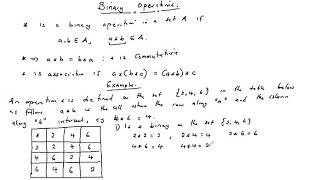 Binary Operations.
* is a binary operation in a set A if
a,b ∈ A, a*b ∈ A.
* ⇒ a*b = b*a : * is commutative
* is associative if a*(b*c) = (a*b)*c
Example.
An operation * is defined on the set {2,4,6} in the table below
as follows. a*b is the cell where the row along "a" and the column
along "b" intersect, eg 6*6 =
* 2 4 6
2 2 4 6
4 6 2 4
6 4 6 2
1) Is * a binary on the set {2,4,6}
2*2=2, 2*4=4 2*6=6
4*6=4 4*4=2